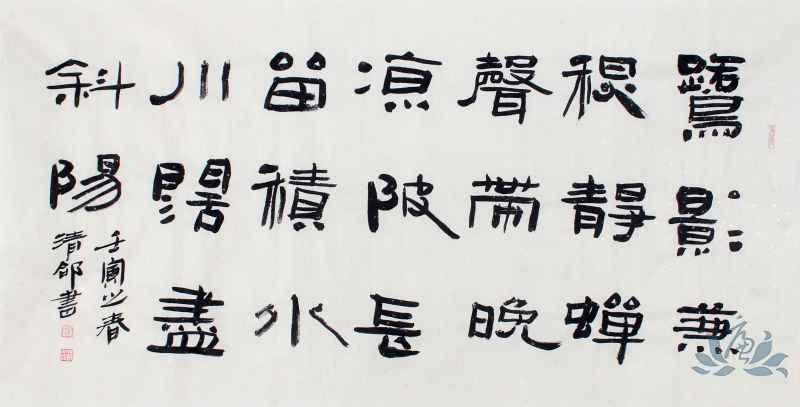 鷺影兼
秋靜蟬
聲帶晚
凉陂長
留積水
川闊盡
斜陽
壬寅之春
清郃書